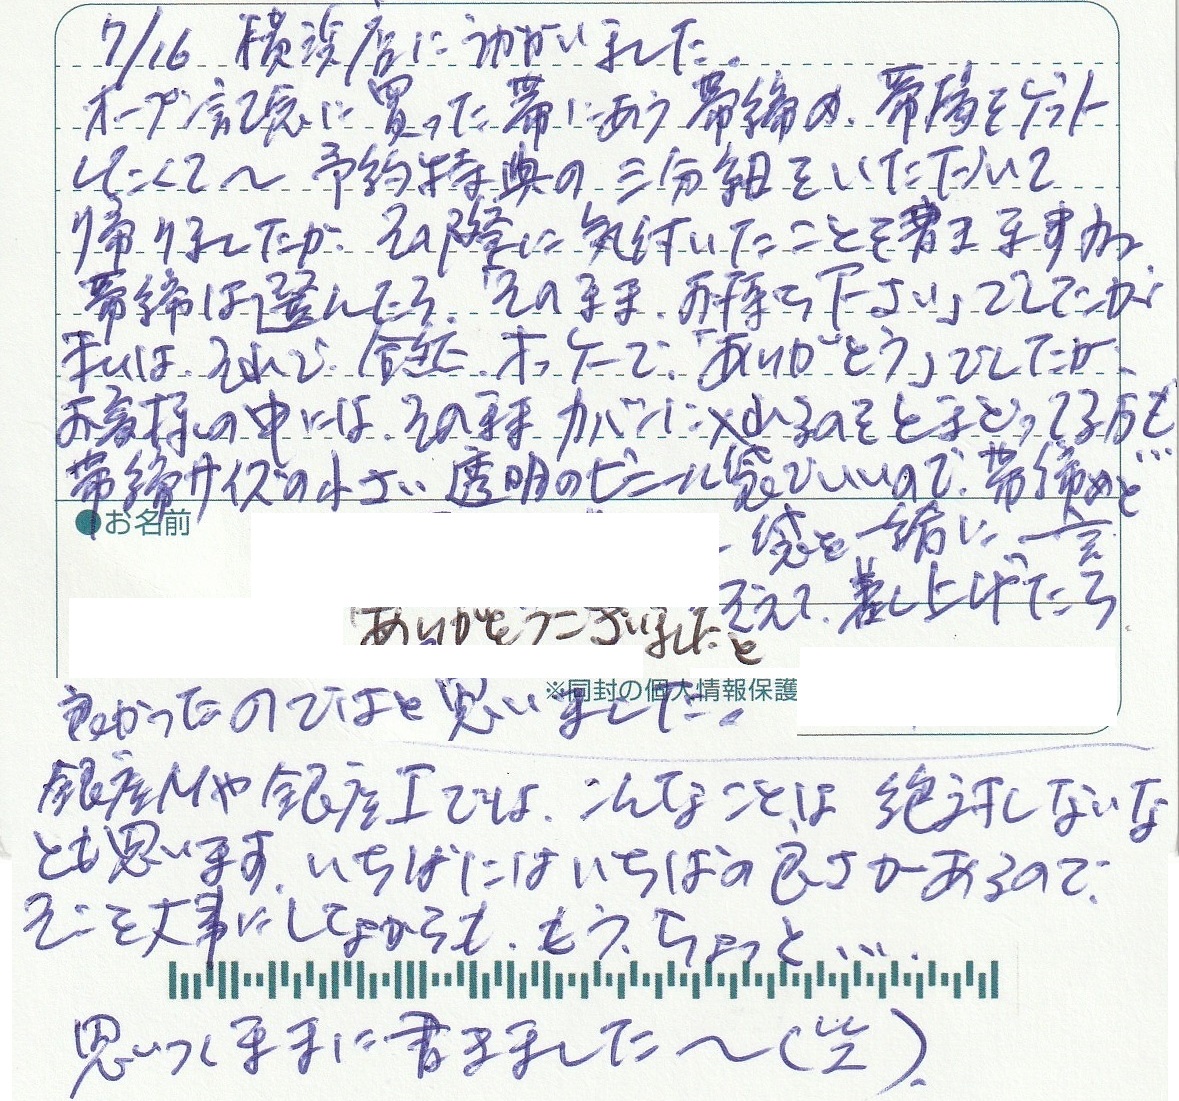 7/16 横浜店にうかがいました。
オープン記念に買った帯にあう帯締め、帯揚をゲット
したくて〜 予約特典の三分紐をいただいて
帰りましたが、その際に気付いたことを書きますね
帯締は選んたら、「そのまま、お持ち下さい」でしてたが
私は、それで、全然、オッケーで、「ありがとう」でしたが、
お客様の中には、そのままカバンに入れるのをとまどってる方も
帯締サイズの小さい透明のビニール袋でいいので、帯締めと…
●お名前
袋を一緒に一言
そえて、差し上げたら
「ありがとうございました」と
※同封の個人情報保護
良かったのではと思いました。
銀座Mや銀座Iでは、こんなことは絶対しないな
とも思います。いちばにはいちばの良さがあるので、
そこを大事にしながらも、もう、ちょっと….
思いつくままに書きました〜(笑).